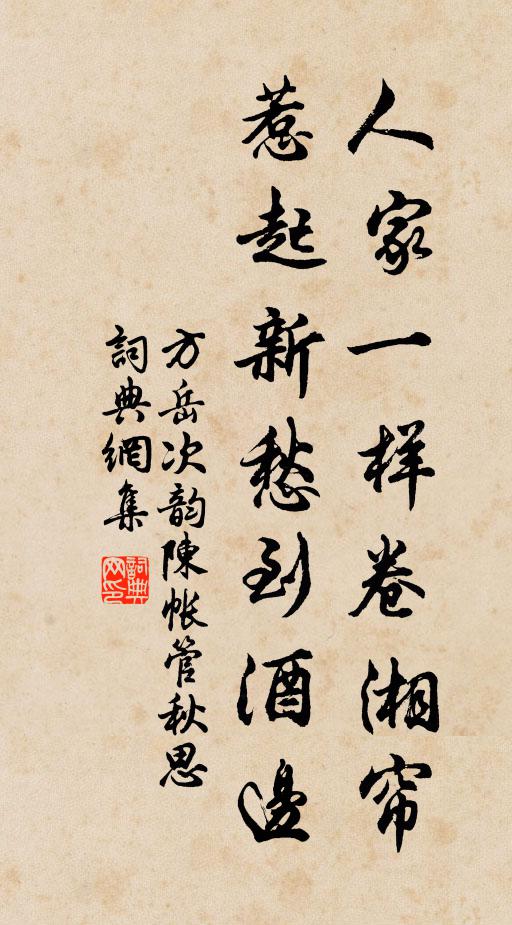 人家一样卷湘帘
惹起新愁到酒邊
方岳次韵陳帐管秋思
詞典網集
詞典网印